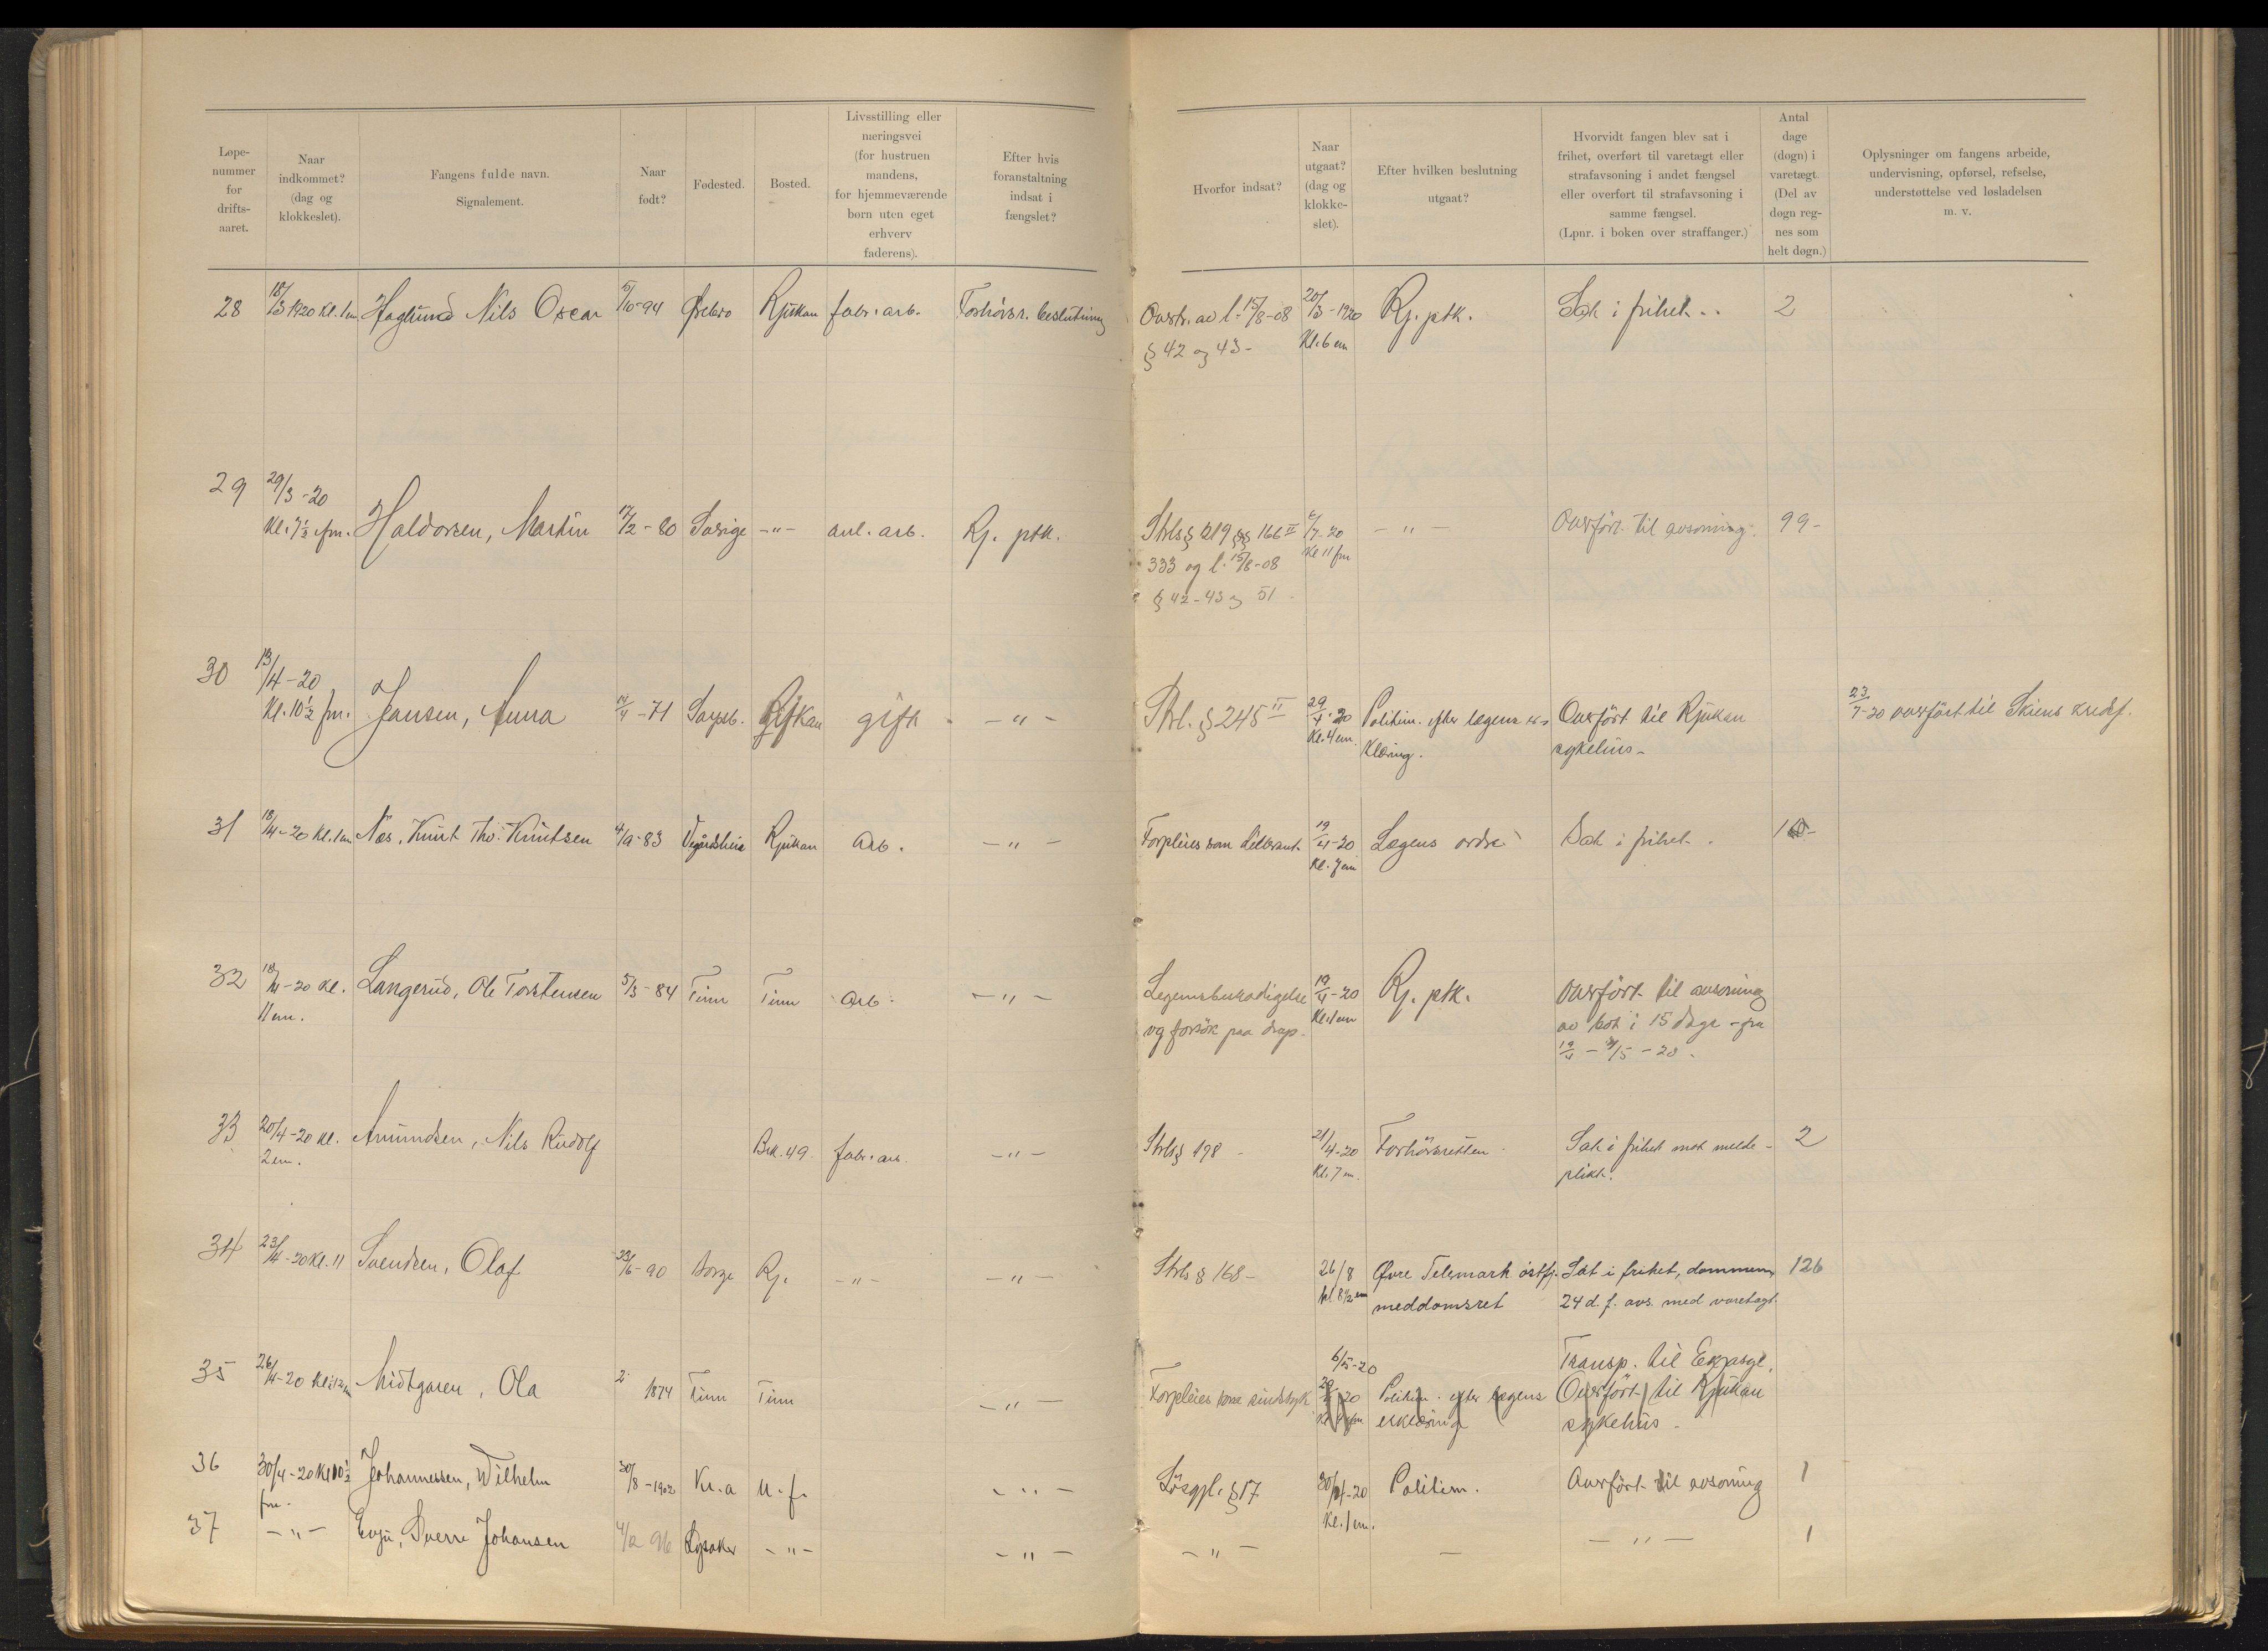 Løpe-
nummer
for
drifts-
aaret.
Naar
indkommet?
(dag og
klokkeslet).
Fangens fulde navn.
Signalement.
Naar
født?
Fødested.
Bosted.
Livsstilling eller
næringsvei
(for hustruen
mandens,
for hjemmeværende
børn uten eget
erhverv
faderens).
Efter hvis
foranstaltning
indsat i
fængslet?
Hvorfor indsat?
Naar
utgaat?
(dag og
klokke-
slet).
Efter hvilken beslutning
utgaat?
Hvorvidt fangen blev sat i
frihet, overført til varetægt eller
strafavsoning i andet fængsel
eller overført til strafavsoning i
samme fængsel.
(Lpnr. i boken over straffanger.)
Antal
dage
(døgn) i
varetægt.
(Del av
døgn reg-
nes som
helt døgn.)
Oplysninger om fangens arbeide,
undervisning, opførsel, refselse,
understøttelse ved løsladelsen
m. v.
28 18/3 1920 Kl. 1 em Haglund Nils Oscar 5/10-94 Ørebro Rjukan fabr. arb. Forhörsr. beslutning Overtr. av l. 15/8-08 20/3-1920 Rj. ptk. Sat i frihet.. 2
§ 42 og 43- Kl. 6 em
29 29/3-20
Kl. 7½ fm. Haldorsen, Martin 17/2-80 Sverige -"- anl. arb. Rj. ptk. Strls § 219 §§ 166 II 6/7-20 -"- Overfört til avsoning. 99-
333 og l. 15/8-08 Kl 11 fm
§ 42-43 og 51
30 13/4-20
Kl. 10½ fm. Jansen, Anna 14/4-71 Sarpsb. Rjukan gift -"- Strl. § 245 II 29/4-20 Politim. efter lægens er- Overfört til Rjukan 23/7-20 overfört til Skiens kredsf.
Kl. 4 em. klæring. sykehus-
31 18/4-20 Kl. 1 em Næs, Knut Tho. Knutsen 4/9-83 Vegårdsheia Rjukan Arb. -"- Forpleies som dellerant. 19/4-20 Lægens ordre Sat i frihet.
Kl. 7 em
32 18/4-20 Kl. Langerud, Ole Torstensen 5/3-84 Tinn Tinn Arb. -"- Legemsbeskadigelse 19/4-20 Rj. ptk. Overfört til avsoning
11 em. og forsök paa drap. Kl. 1 em av bot i 15 dage - fra
19/4 - 4/5 - 20.
33 20/4-20 Kl. Amundsen, Nils Rudolf Brk. 49. fabr. arb. -"- Strls § 198 21/4-20 Forhörsretten Sat i frihet mot melde- 2
2 em. Kl. 7 em. plikt.
34 23/4-20 Kl. 11 Svendsen, Olaf 23/6-90 Borge Rj. -"- -"- Strls § 168- 26/8 Øvre Telemark östfj. Sat i frihet, dommen, 126
kl. 8½ em meddomsret 24 d. f. avs. med varetægt.
35 26/4-20 Kl. 12 Midtgaren, Ola 2 1874 Tinn Tinn -"- Forpleies som sindssyk 6/5-20 Transp. til Ekpsyl.
29/4-20 Politim. efter lægens Overfört til Rjukan
erklæring sykehus-
36 30/4-20 Kl 10½ Johannessen, Wilhelm 30/8-1902 Kr.a u.f. -"- Lösgjl. § 17 30/4-20 Politim. Overfört til avsoning 1
fm. Kl. 1 em.
37 -"- Evju, Sverre Johansen 4/2 96 Lysaker -"- -"- -"- - -"- 1